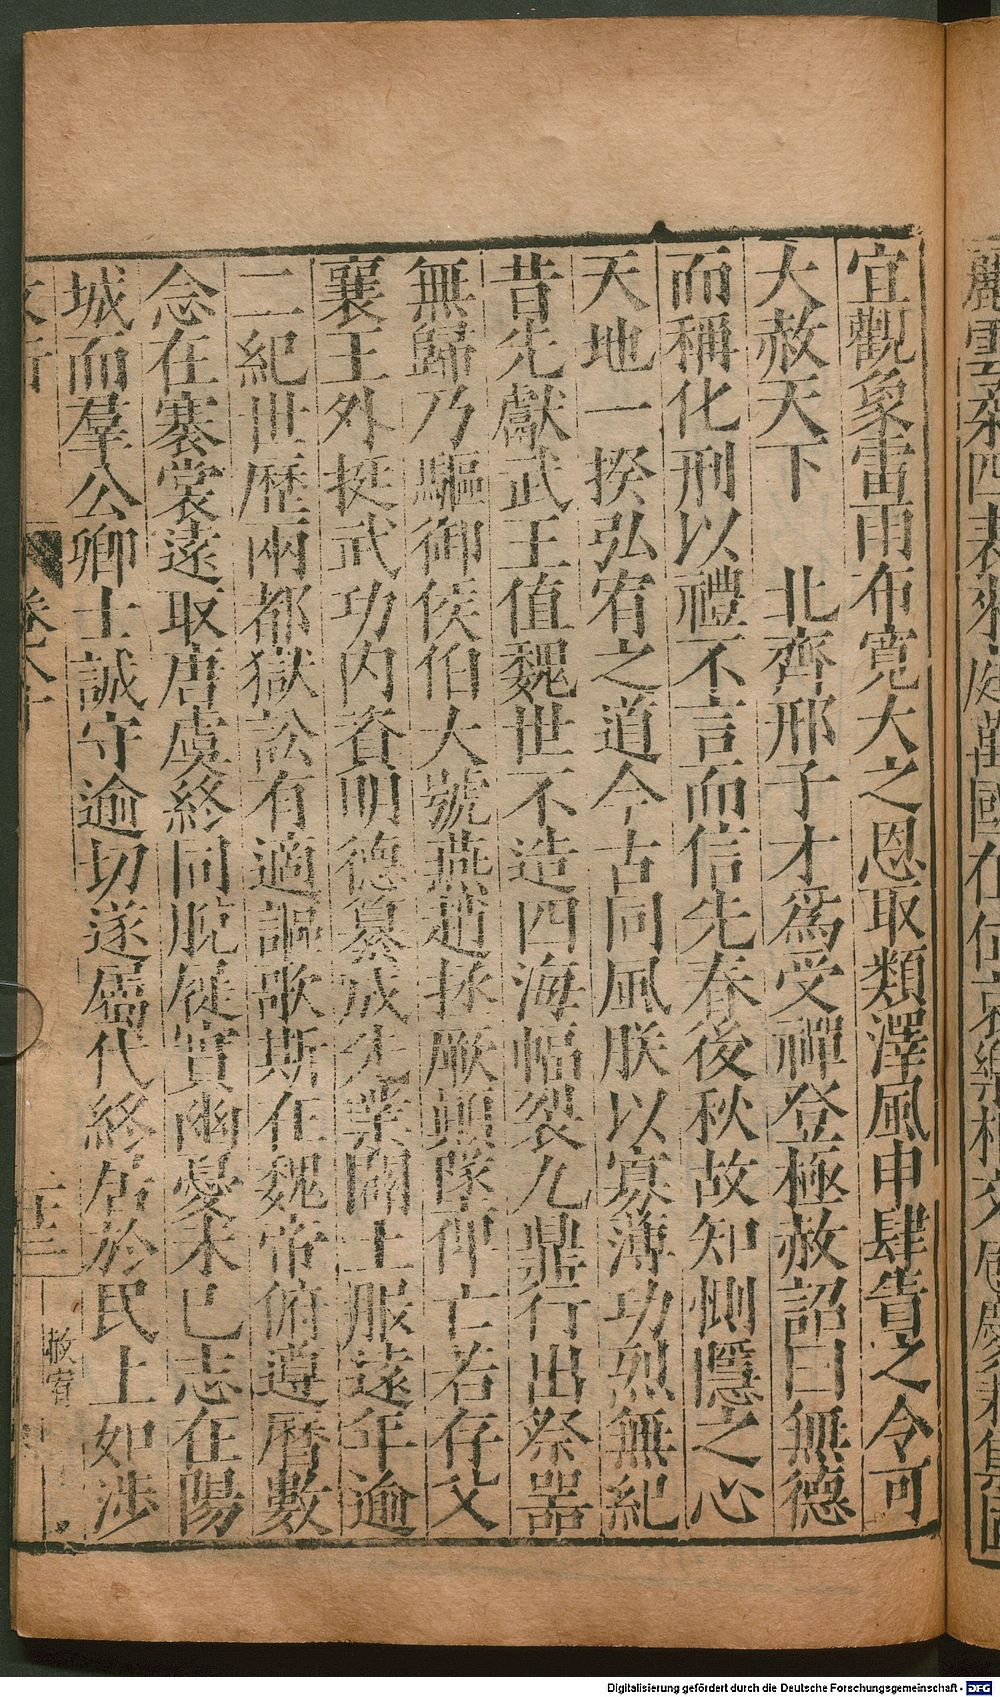 宜觀象雷雨布寬大之恩取類澤風申肆眚之令可
大赦天下　北齊邢子才爲受禪登極赦詔曰無德
而稱化刑以禮不言而信先春後秋故知惻隱之心
天地一揆弘宥之道今古同風朕以寡薄功烈無紀
昔先獻武王值魏世不造四海幅裂九鼎行出祭器
無歸乃驅御侯伯大號燕趙拯厥顛墜俾亡若存文
襄王外挺武功內資明德纂成先業闢土服遠年逾
二紀世歷兩都獄訟有適謳歌斯在魏帝俯遵曆數
念在褰裳遠取唐虞終同脫屣實幽憂未已志在陽
城而羣公卿士誠守逾切遂屬代終居於民上如涉
赦宥
Digitalisierung gefördert durch die Deutsche Forschungsgemeinschaft - DFG